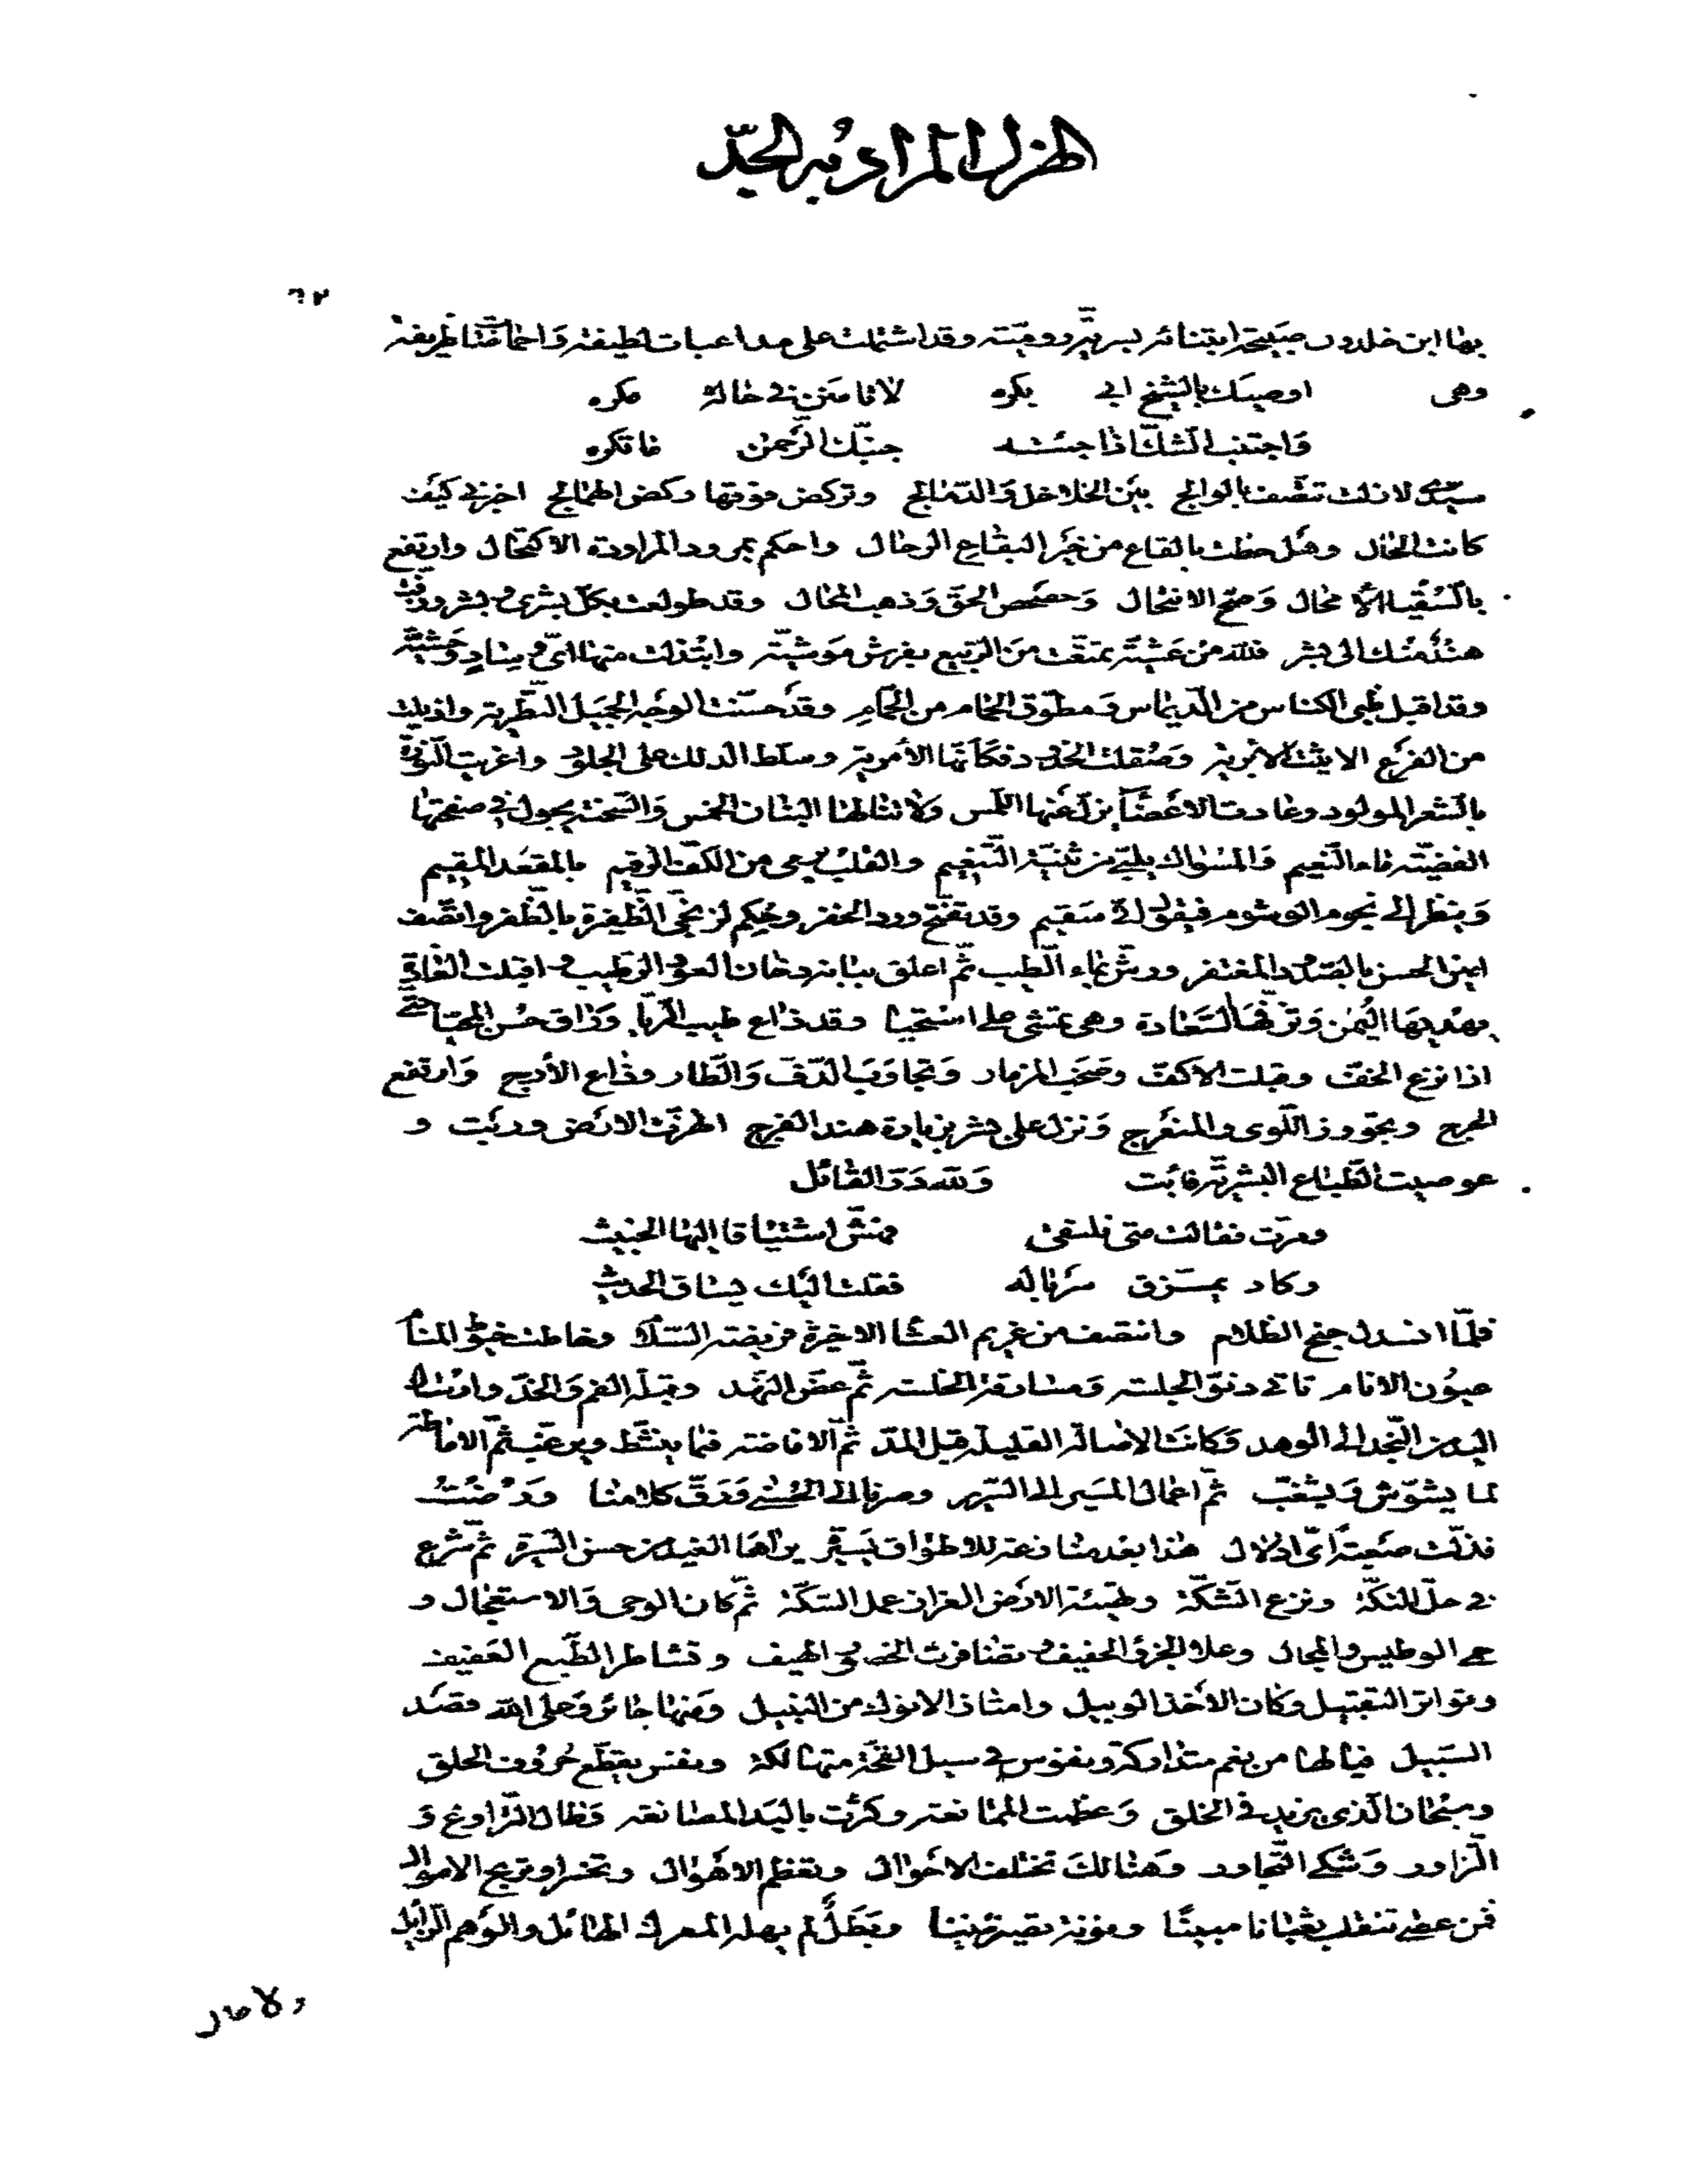 الهزل المراد به الجدّ
٦٢
بها ابن خلدون صبيحة ابتنائه بسرية رومية وقد اشتملت على مداعبات لطيفة واحماضات ظريفة
وهي اوصيك بالشيخ ابي بكره لا تامنن في حالة مكره
واجتنب الشك اذا جئته جنبك الرحمن ما تكره
سيدي لا زلت تتصف بالوالج بين الخلاخل والدمالج وتركض فوقها ركض الهمالج اخبرني كيف
كانت الحال وهل حطت بالقاع من خير البقاع الرحال واحكم بمرود المراودة الاكتحال وارتفع
بالسقيا الامحال وصح الانتحال وحصحص الحق وذهب المحال وقد طولعت بكل بشرى وبشر وزفت
هند منك الى بشر فلله من عشية تمتعت من الربيع بفرش موشية وابتذلت منها اي وساد وحشية
وقد اقبل ظبي الكناس من الديماس ومطوق الحمام من الحمام وقد حسنت الوجه الجميل التطرية وازيلت
من الفرع الاثيث الابرية وصقلت الخدود فكأنها الأمرية وسلط الدلك على الجلود واغريت النورة
بالشعر المولود وعادت الاعضاء يزل عنها اللمس ولا تنالها البنان الخمس والسحنة يجول في صفحتها
الفضية ماء النعيم والمسواك يلبي من ثنية التنعيم والقلب يرمى من الكف الرقيم بالمقعد المقيم
وينظر الى نجوم الوشوم فيقول اني سقيم وقد تفتح ورد الخفر وحكم لزنجي الظفيرة بالظفر واتصف
امير الحسن بالصدود المغتفر ورش بماء الطيب ثم اعلق ببابه دخان العود الرطيب واقبلت الغادة
يهديها اليمن وتزفها السعادة وهي تمشي على استحيا وقد ذاع طيب الريا وراق حسن المحيا حتى
اذا نزع الخف وقبلت الاكف وصخب المزمار وتجاوب الدف والطار وذاع الأريج وارتفع
الحرج وتجوز اللوى والمنعرج ونزل على بشر بزيارة هند الفرج اهتزت الارض وربت و
عوصيت الطباع البشرية فابت ولله در القائل
ومرت فقالت متى نلتقي فهش اشتياقا اليها الخبيث
وكاد يمزق سرباله فقلت اليك يساق الحديث
فلما انسدل جنح الظلام وانتصف من غريم العشا الاخيرة فريضة السلام وخاطت خيوط المنام
عيون الانام تاتى دنو الجلسة ومسارقة الخلسة ثم عض النهد وقبلة الفم والخد وارسال
اليد من النجد الى الوهد وكانت الامالة القليلة قبل المد ثم الافاضة فيما ينشط ويرغب ثم الاماطة
لما يشوش ويشغب ثم اعمال المسير الى السرير وصرنا الى الحسنى ورق كلامنا ورضت
فذلت صعبة اي اذلال هذا بعد منازعة للاطواق يسيرة يراها الغيد من حسن السيرة ثم شرع
في حل التكة ونزع الشكة وتهيئة الارض العزاز عمل السكة ثم كان الوحي والاستعجال و
حمي الوطيس والمجال وعلا الجزء الخفيف وتضافرت الخصور الهيف وتشاطر الطبع العفيف
وتواتر التقبيل وكان الاخذ الوبيل وامتاز الانوك من النبيل ومنها جائر وعلى الله قصد
السبيل فيا لها من نعم متداركة ونفوس في سبيل القحة متهالكة ونفس يقطع حروف الحلق
وسبحان الذي يزيد في الخلق وعظمت الممانعة وكثرت باليد المصانعة وطال التراوغ و
التزاور وشكي التجاور وهنالك تختلف الاحوال وتعظم الاهوال وتخسر او تربح الاموال
فمن عصى تنقلب ثعبانا مبينا ونونة تصير تنينا وبطل لم يهله المعرك الهائل والوهم الزائل
ولا حال